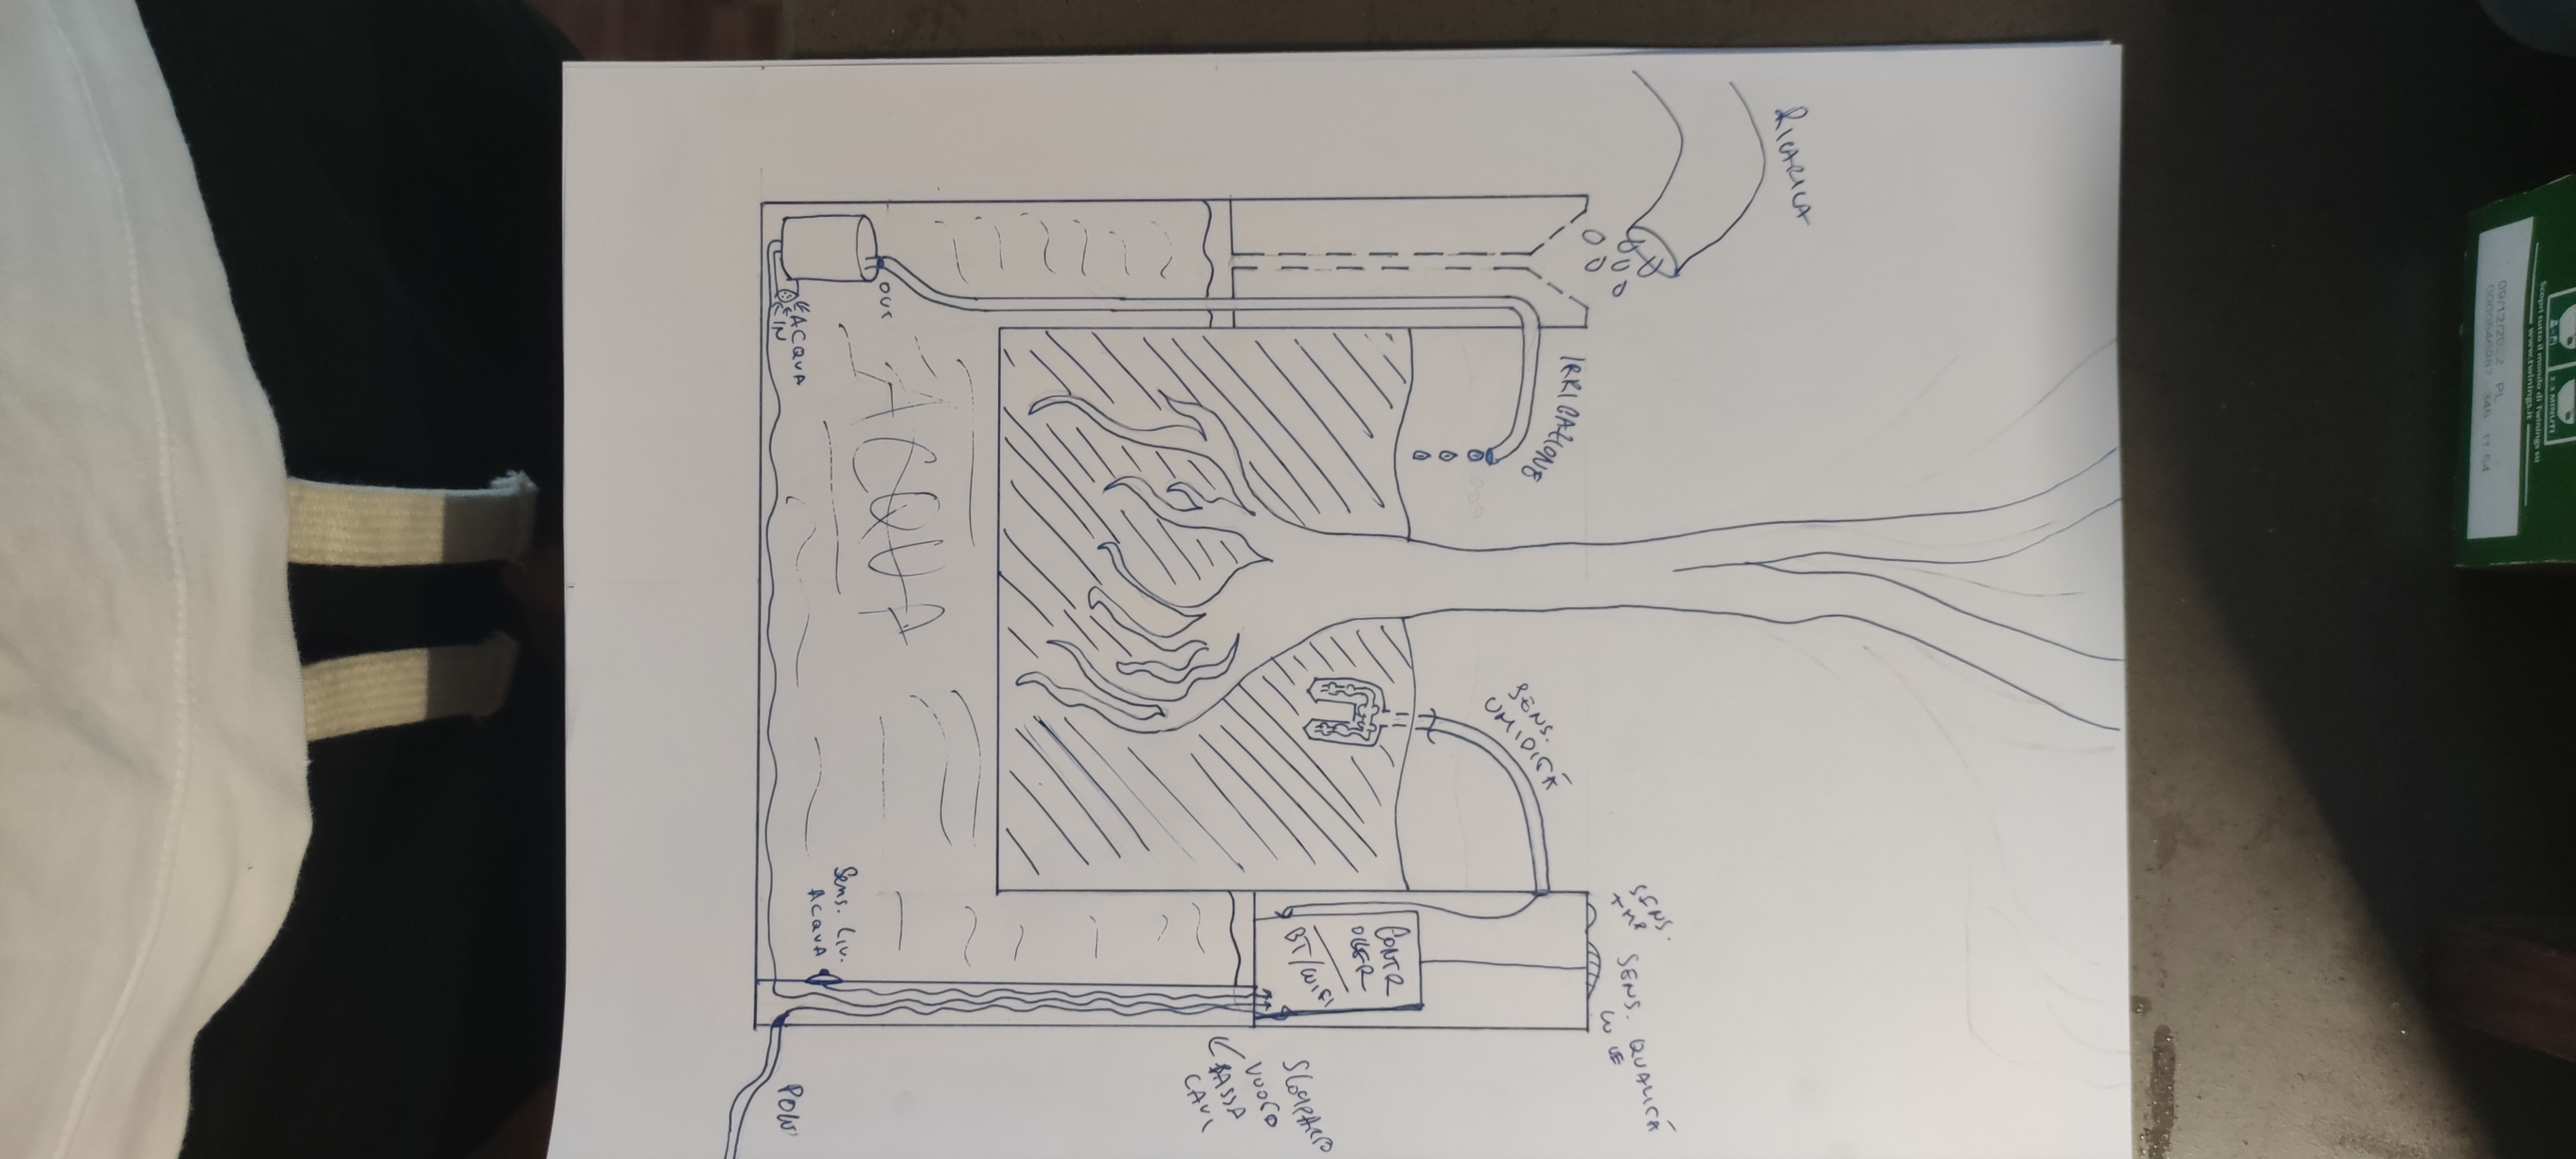 2-3 MINUTI
Scopri tutto il mondo di Twinings su
www.twinings.it
09/12/2022 PL
0000546987 - 345 11 54
RICARICA
IRRIGAZIONE
SENS.
UMIDITÁ
SENS.
TMP
SENS. QUALITÁ
LUCE
CONTR
OLLER
BT/WIFI
SCOMPARTO
VUOTO
PASSA
CAVI
ACQUA
OUT
ACQUA
IN
SENS. LIV.
ACQUA
POW